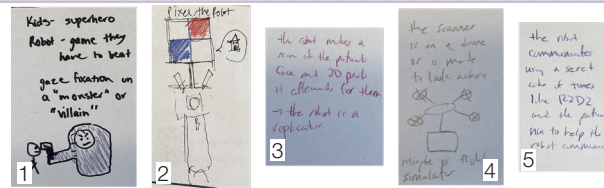 Kids- superhero
Robot - game they
have to beat
gaze fixation on
a "monster" or
"villain"
1
Pixel the Robot
2
the robot makes a
scan of the patients
face and 3D prints
it afterwards for them
→ the robot is a
replicator
3
the scanner
is on a drone
or is made
to look where
maybe a flight
simulator
4
the robot
communicates
using a secret
code of tones
like R2D2
and the patient
has to help the
robot commun
5